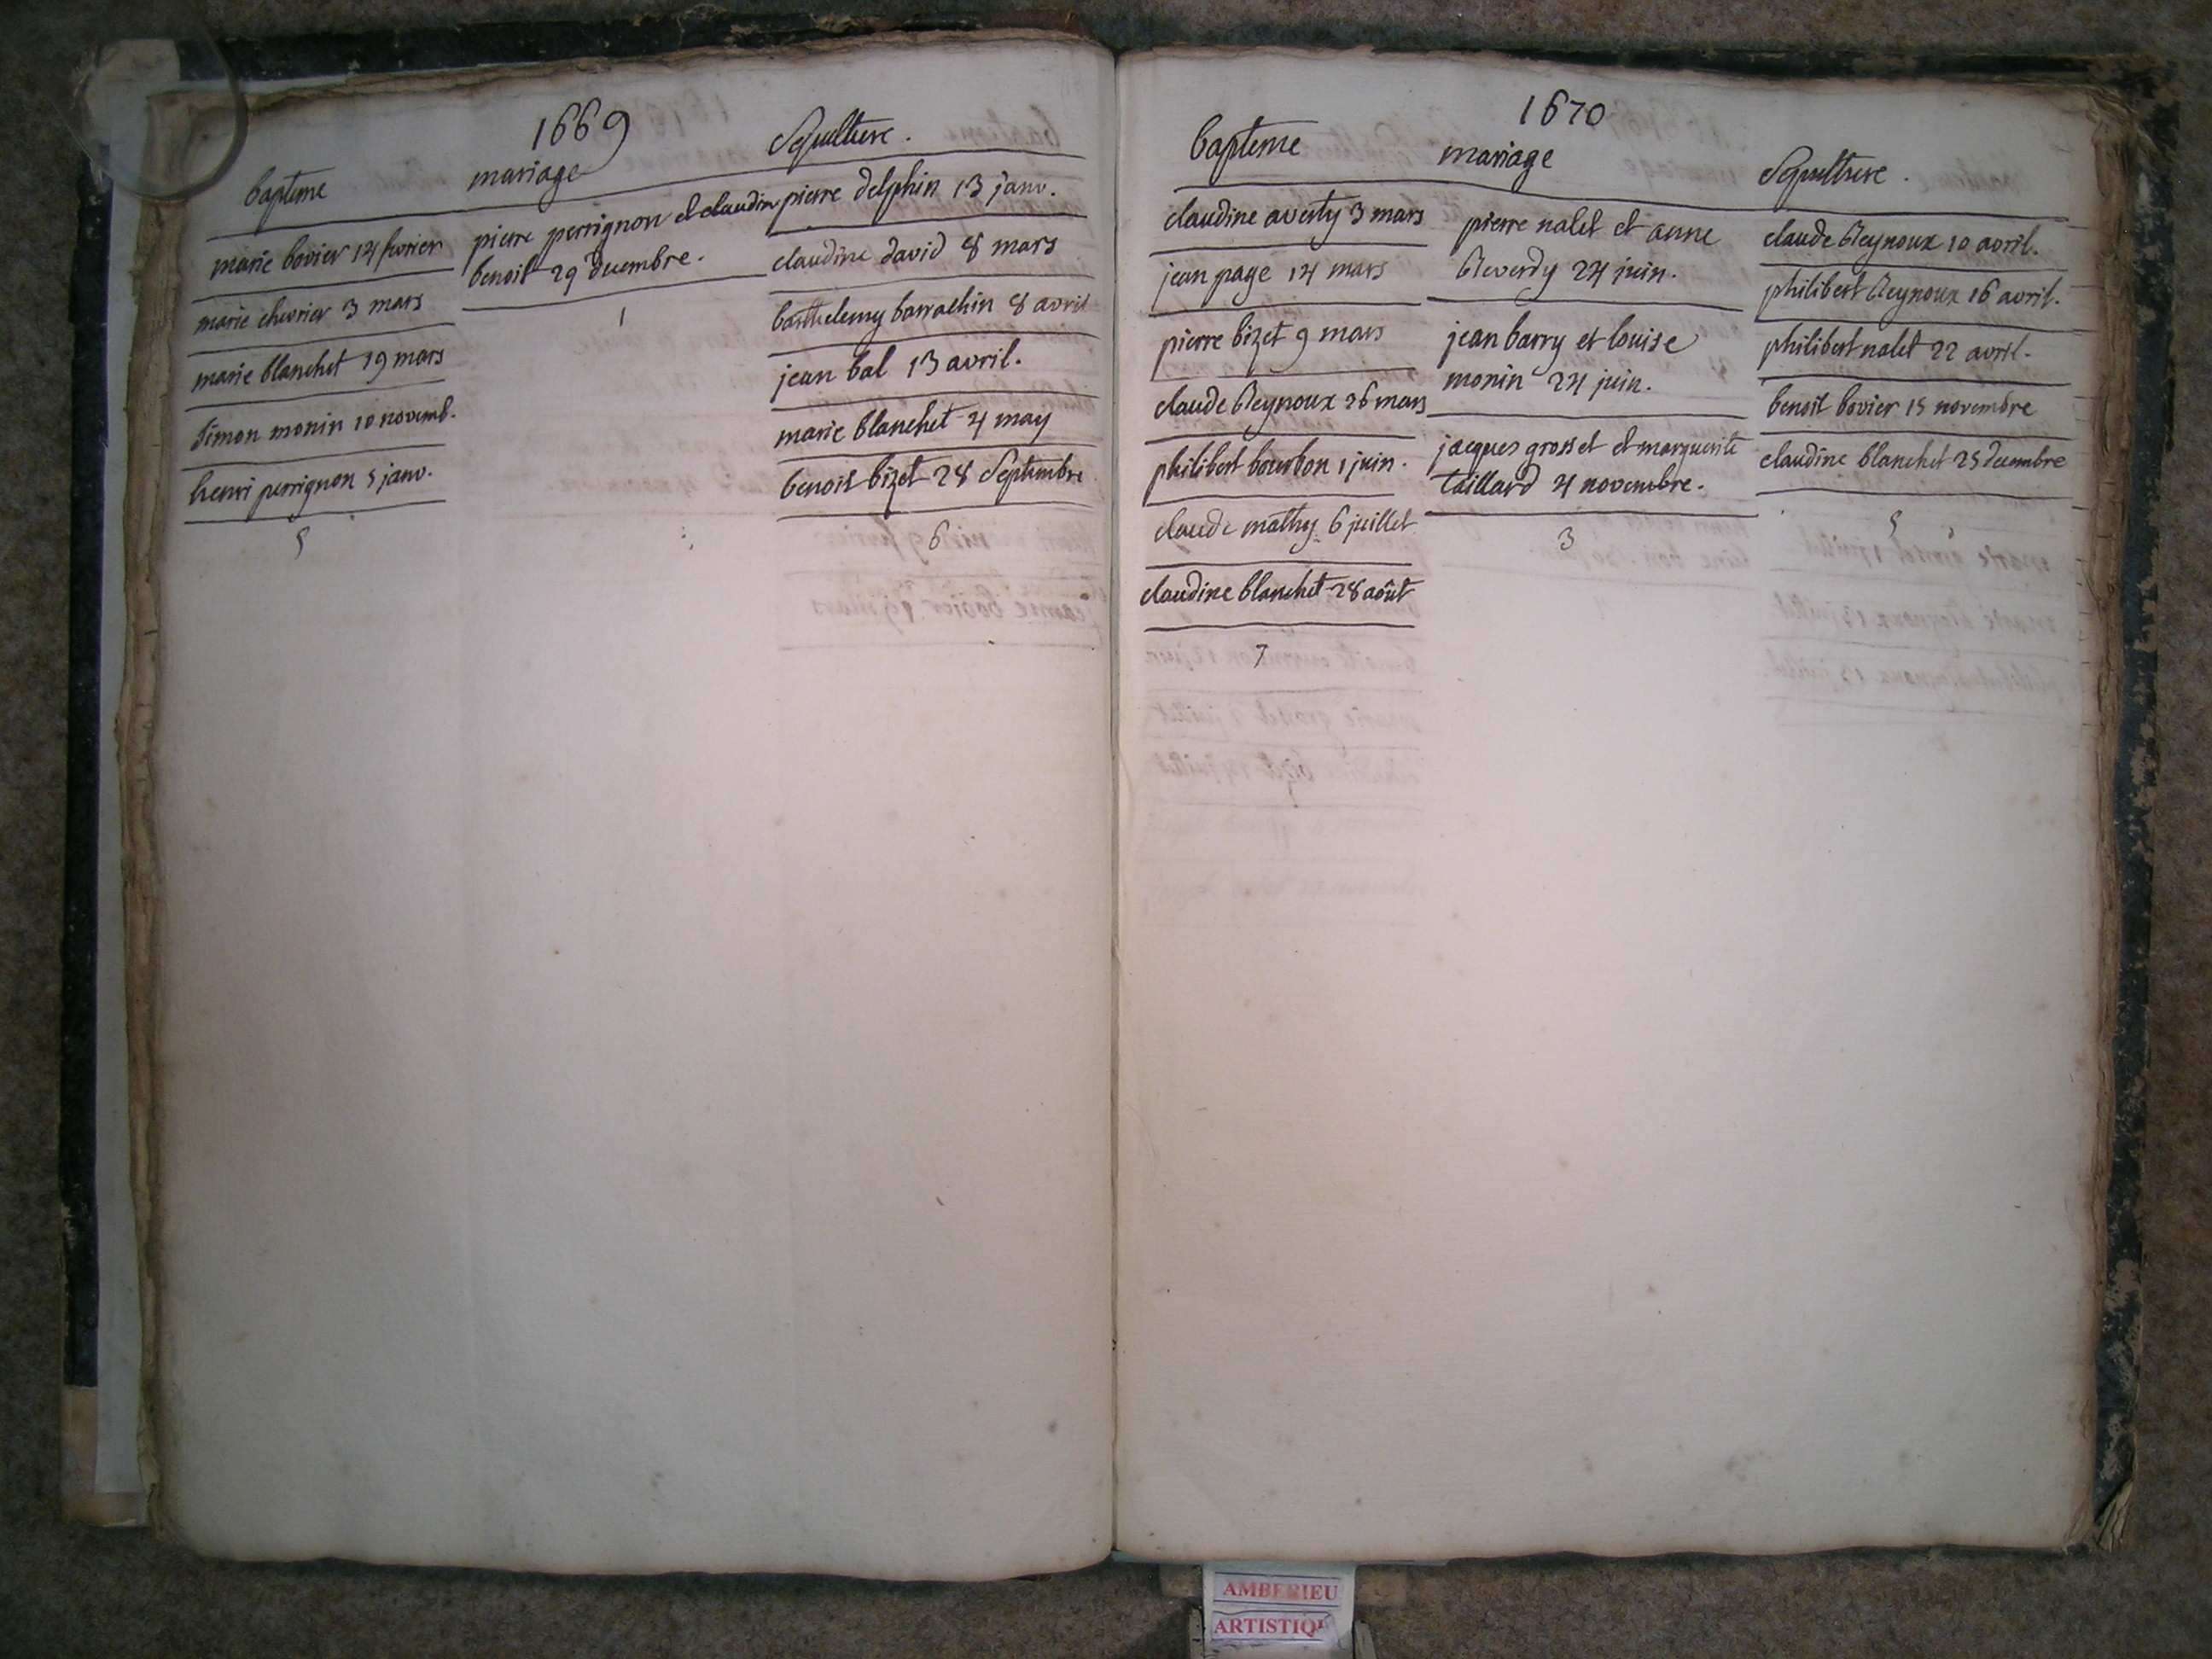 1669
bapteme
marie bovier 14 fevrier
marie chevrier 3 mars
marie blanchet 19 mars
Simon monin 10 novemb.
henri perrignon 5 janv.
5
mariage
pierre perrignon et claudin
benoit 29 decembre.
1
Sepulture.
pierre delphin 13 janv.
claudine david 8 mars
barthelemy barrachin 8 avril
jean bal 13 avril.
marie blanchet 4 may
benoit bizet 28 Septembre
6
1670
bapteme
claudine averty 3 mars
jean page 14 mars
pierre bizet 9 mars
claude Reynoux 26 mars
philibert bourbon 1 juin.
claude mathy 6 juillet
claudine blanchet 28 août
7
mariage
pierre nalet et anne
Reverdy 24 juin.
jean barry et louise
monin 24 juin.
jacques grosset et marguerite
taillard 4 novembre.
3
Sepulture.
claude Reynoux 10 avril.
philibert Reynoux 16 avril.
philibert nalet 22 avril.
benoit bovier 15 novembre
claudine blanchet 25 decembre
5
AMBERIEU
ARTISTIQU